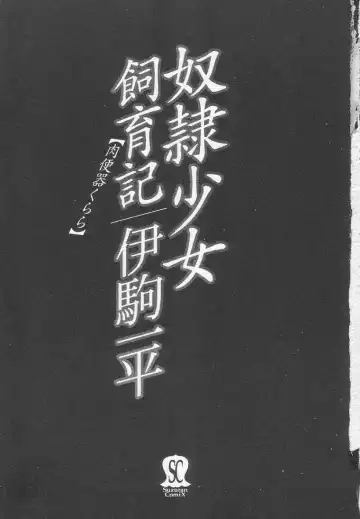 奴隷少女
飼育記／伊駒一平
【肉便器くらら】
SC
Suzuran
ComiX